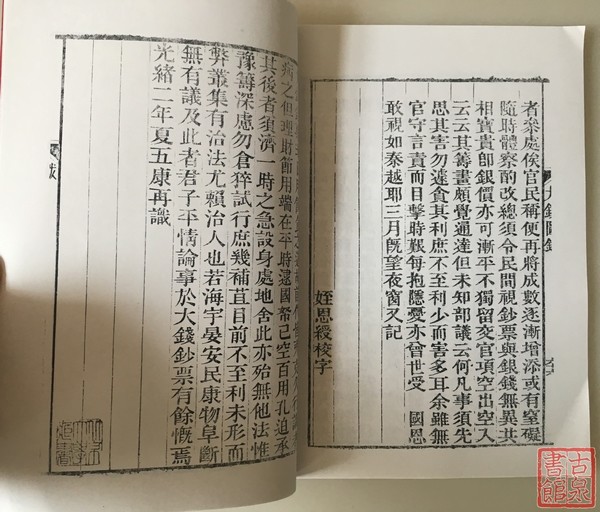 者衆處俟官民稱便再將成數逐漸增添或有窒礙
隨時體察酌改總須令民間視鈔票與銀錢無異其
相寶貴卽銀價亦可漸平不獨留交官項空出空入
云云其籌畫頗覺通達但未知部議云何凡事須先
思其害勿遽貪其利庶不至利少而害多耳余雖無
官守言責而目擊時艱每抱隱憂亦曾世受 國恩
敢視如秦越耶三月旣望夜窗又記
姪恩綬校字
大錢圖錄
病之但理財節用端在平時逮國帑已空百用孔迫承
其後者須濟一時之急設身處地舍此亦殆無他法惟
豫籌深慮勿倉猝試行庶幾補苴目前不至利未形而
弊叢集有治法尤賴治人也若海宇晏安民康物阜斷
無有議及此者君子平情論事於大錢鈔票有餘慨焉
光緒二年夏五康再識
古泉書館